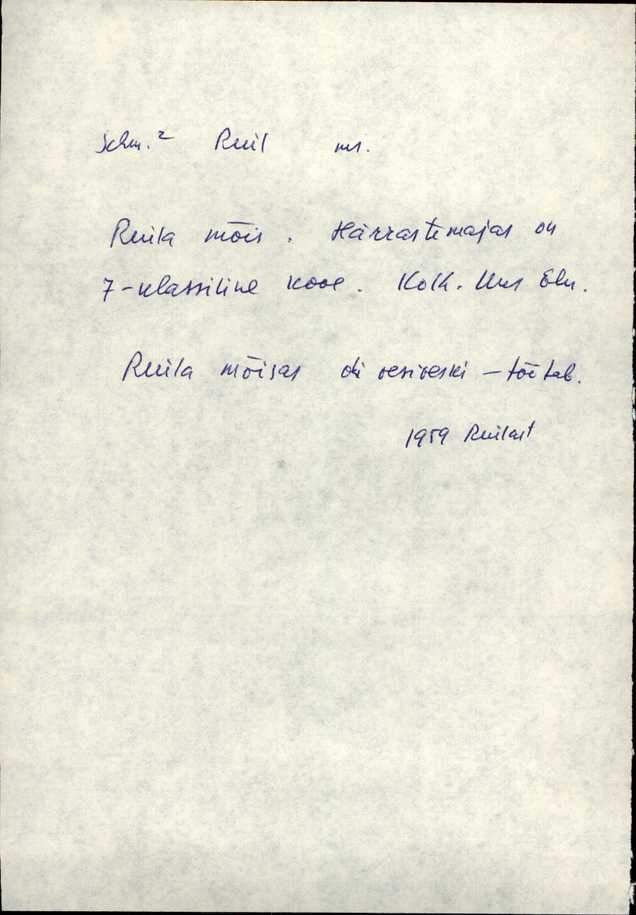 Schm.² Ruil ms.
Ruila mõis. Härrastemajas on
7-klassiline kool. Kolk. Uus Elu.
Ruila mõisas oli vesiveski – töötab.
1959 Ruilast